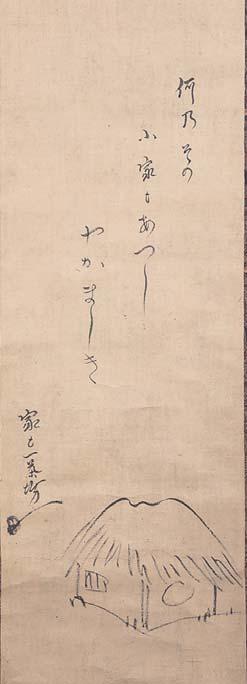 何乃その
小家もあつし
やかましき
家も一茶坊